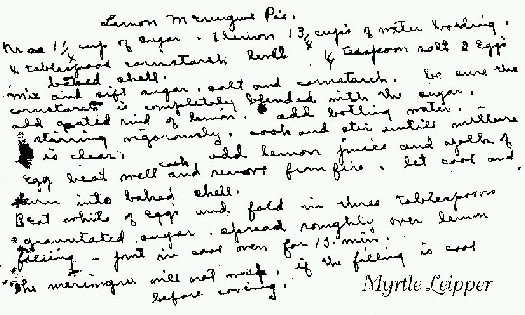 Lemon Meringue Pie.
1 1/2 cup of sugar. 1 lemon 1 3/4 cups of water boiling.
4 tablespoons cornstarch level 1/4 teaspoon salt 2 eggs
baked shell.
mix and sift sugar, salt and cornstarch. be sure the
cornstarch is completely blended with the sugar.
add grated rind of lemon. add boiling water.
stirring vigorously. cook and stir until mixture
is clear. add lemon juice and yolks of
egg beat well and remove from fire. let cool and
turn into baked shell.
Beat white of eggs and fold in three tablespoons
granulated sugar. spread roughly over lemon
filling - put in oven for 15 min.
The meringue will not if the filling is cool
before covering.
Myrtle Leipper